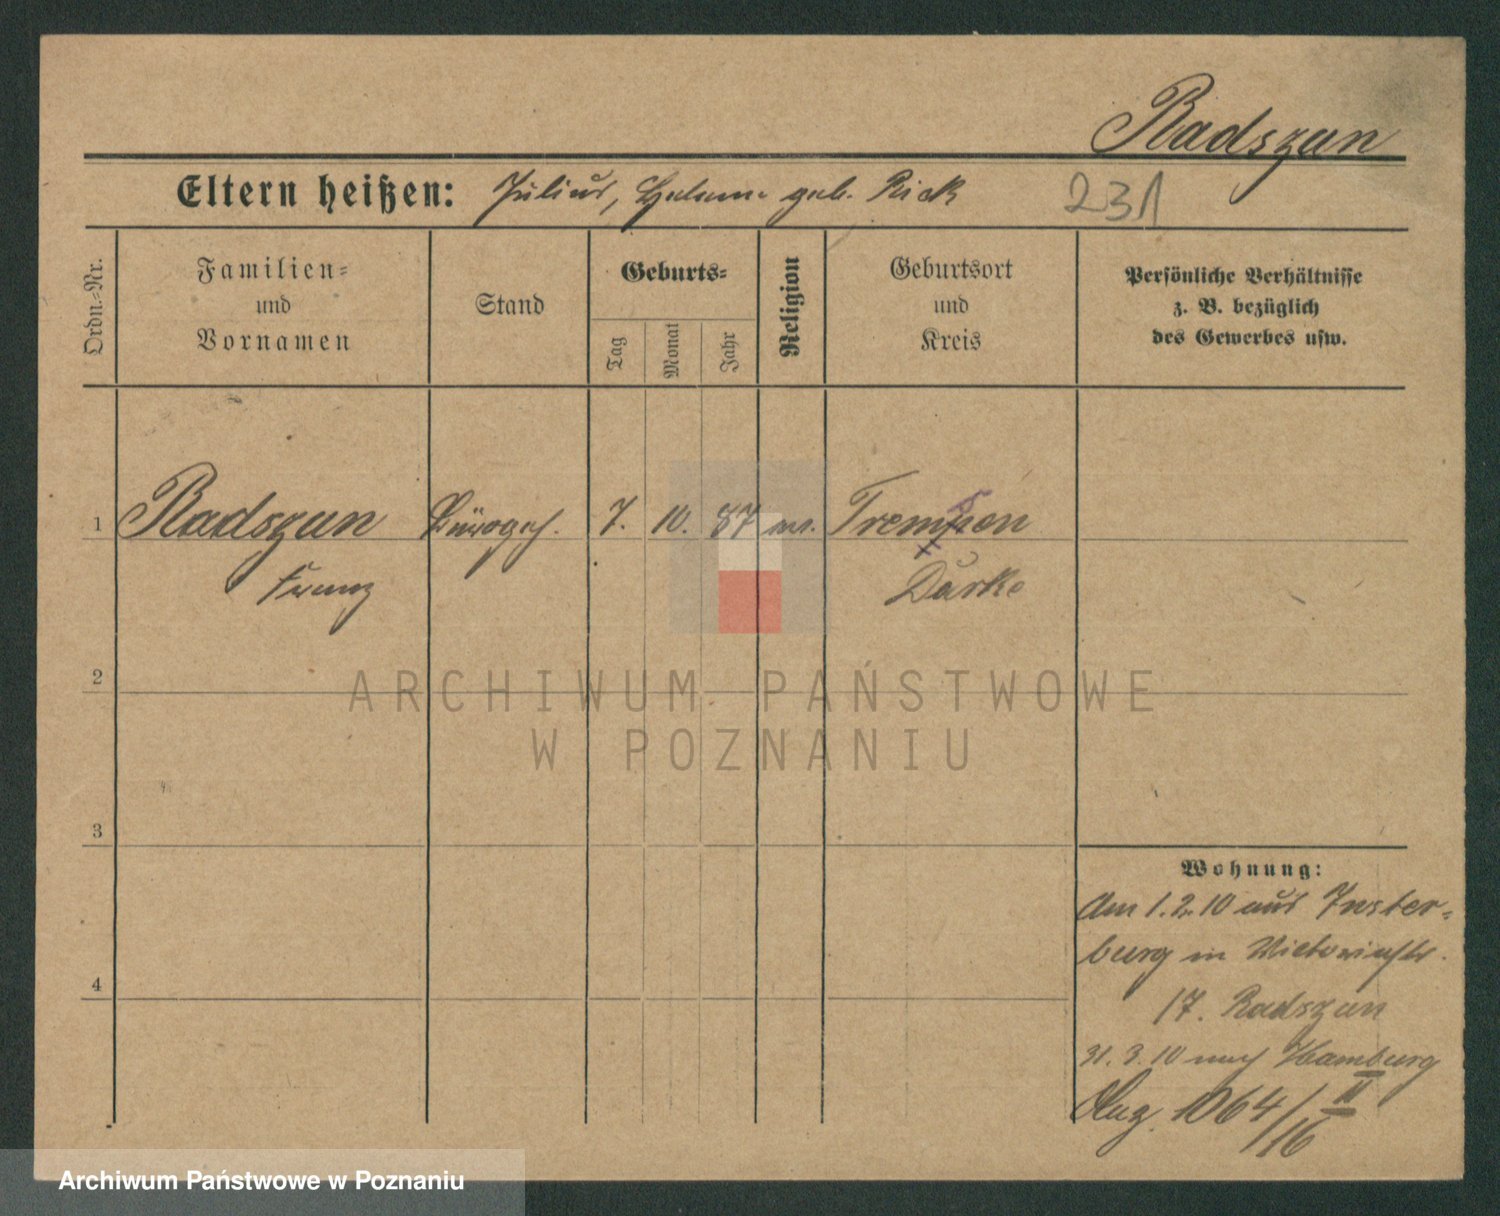 Radszun
Eltern heißen: Julius, geb. Rick 231
Ordn.-Nr.
Familien-
und
Vornamen
Stand
Geburts-
Tag
Monat
Jahr
Religion
Geburtsort
und
Kreis
Persönliche Verhältnisse
z. B. bezüglich
des Gewerbes usw.
1 Radszun Bürogeh. 7. 10. 87 Trempen
Franz Darke
2
ARCHIWUM PAŃSTWOWE
W POZNANIU
3
4
Wohnung:
Am 1.2.10 aus Inster-
burg in Victoriastr.
17. Radszun
31.3.10 nach Hamburg
1064/16 II
Archiwum Państwowe w Poznaniu